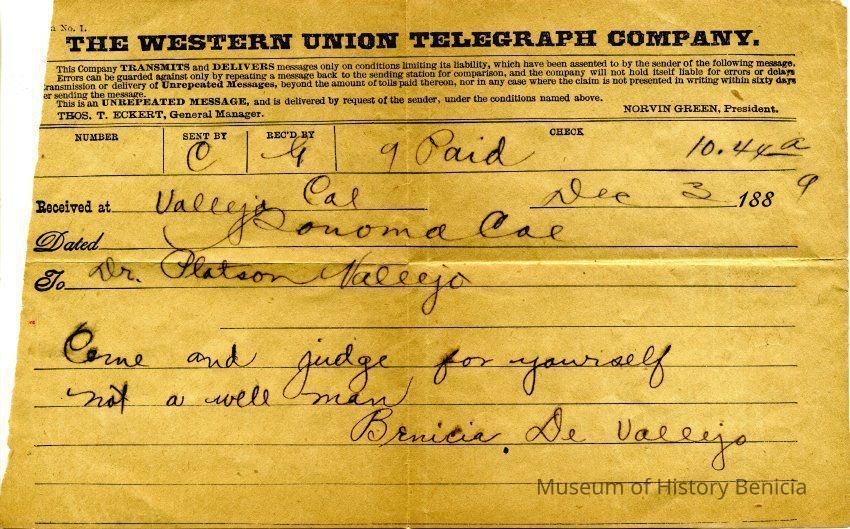 a No. 1.
THE WESTERN UNION TELEGRAPH COMPANY.
This Company TRANSMITS and DELIVERS messages only on conditions limiting its liability, which have been assented to by the sender of the following message.
Errors can be guarded against only by repeating a message back to the sending station for comparison, and the company will not hold itself liable for errors or delays
transmission or delivery of Unrepeated Messages, beyond the amount of tolls paid thereon, nor in any case where the claim is not presented in writing within sixty days
er sending the message.
This is an UNREPEATED MESSAGE, and is delivered by request of the sender, under the conditions named above.
THOS. T. ECKERT, General Manager. NORVIN GREEN, President.
NUMBER SENT BY REC'D BY CHECK
C G 9 Paid 10.44 a
Received at Vallejo Cal Dec 3 1889
Dated Sonoma Cal
To Dr. Platson Vallejo
Come and judge for yourself
not a well man
Benicia De Vallejo
Museum of History Benicia